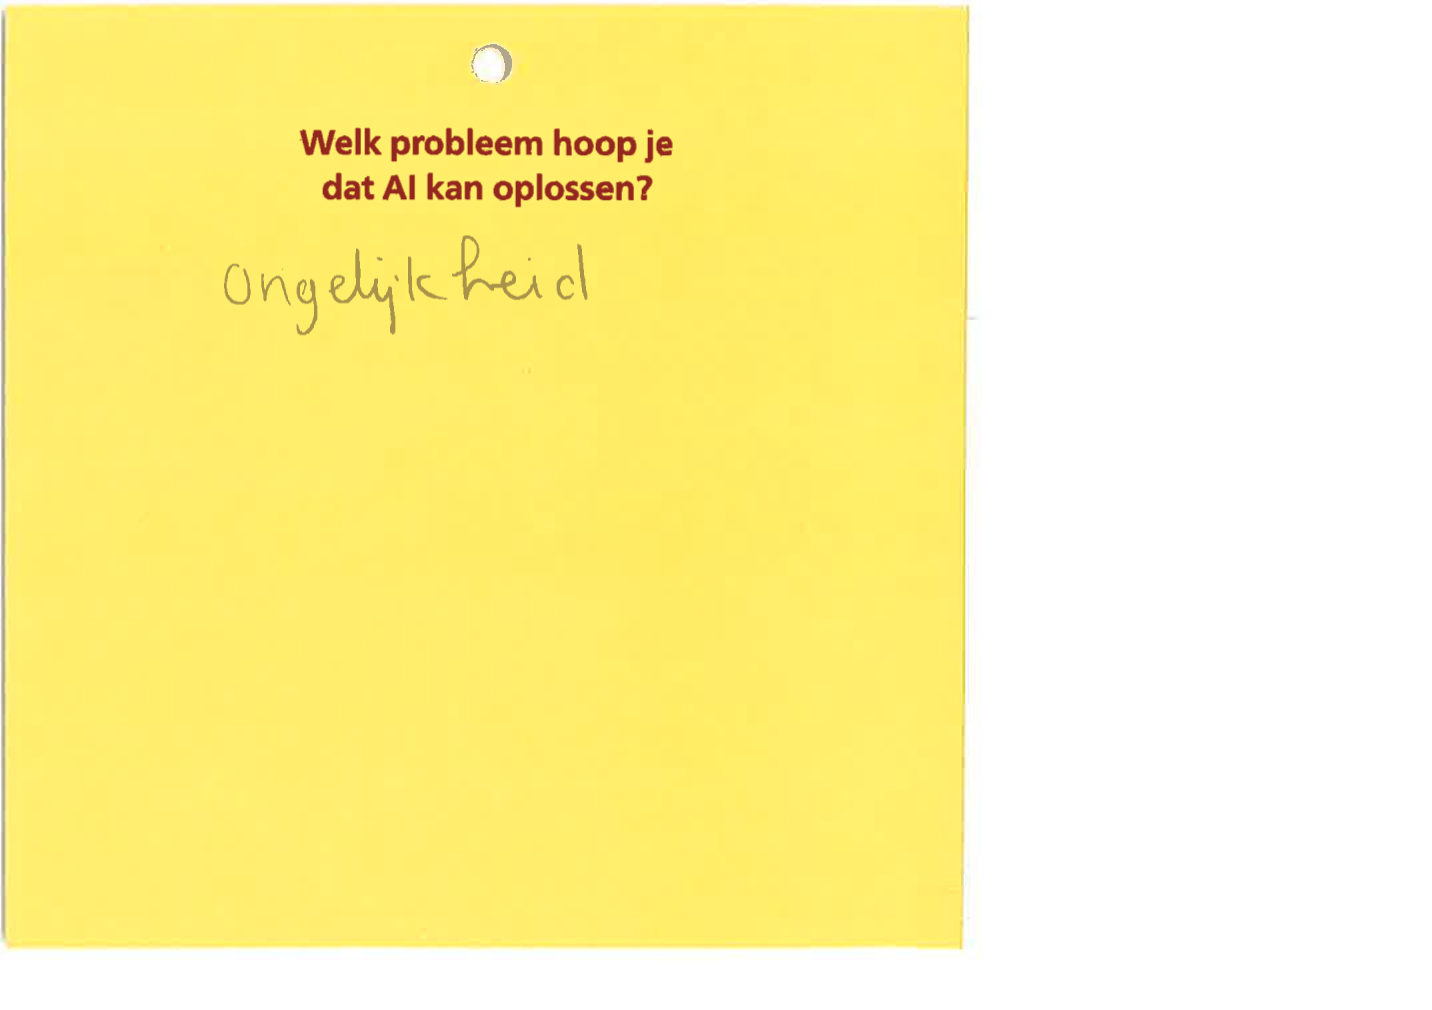 Welk probleem hoop je
dat AI kan oplossen?
Ongelijkheid